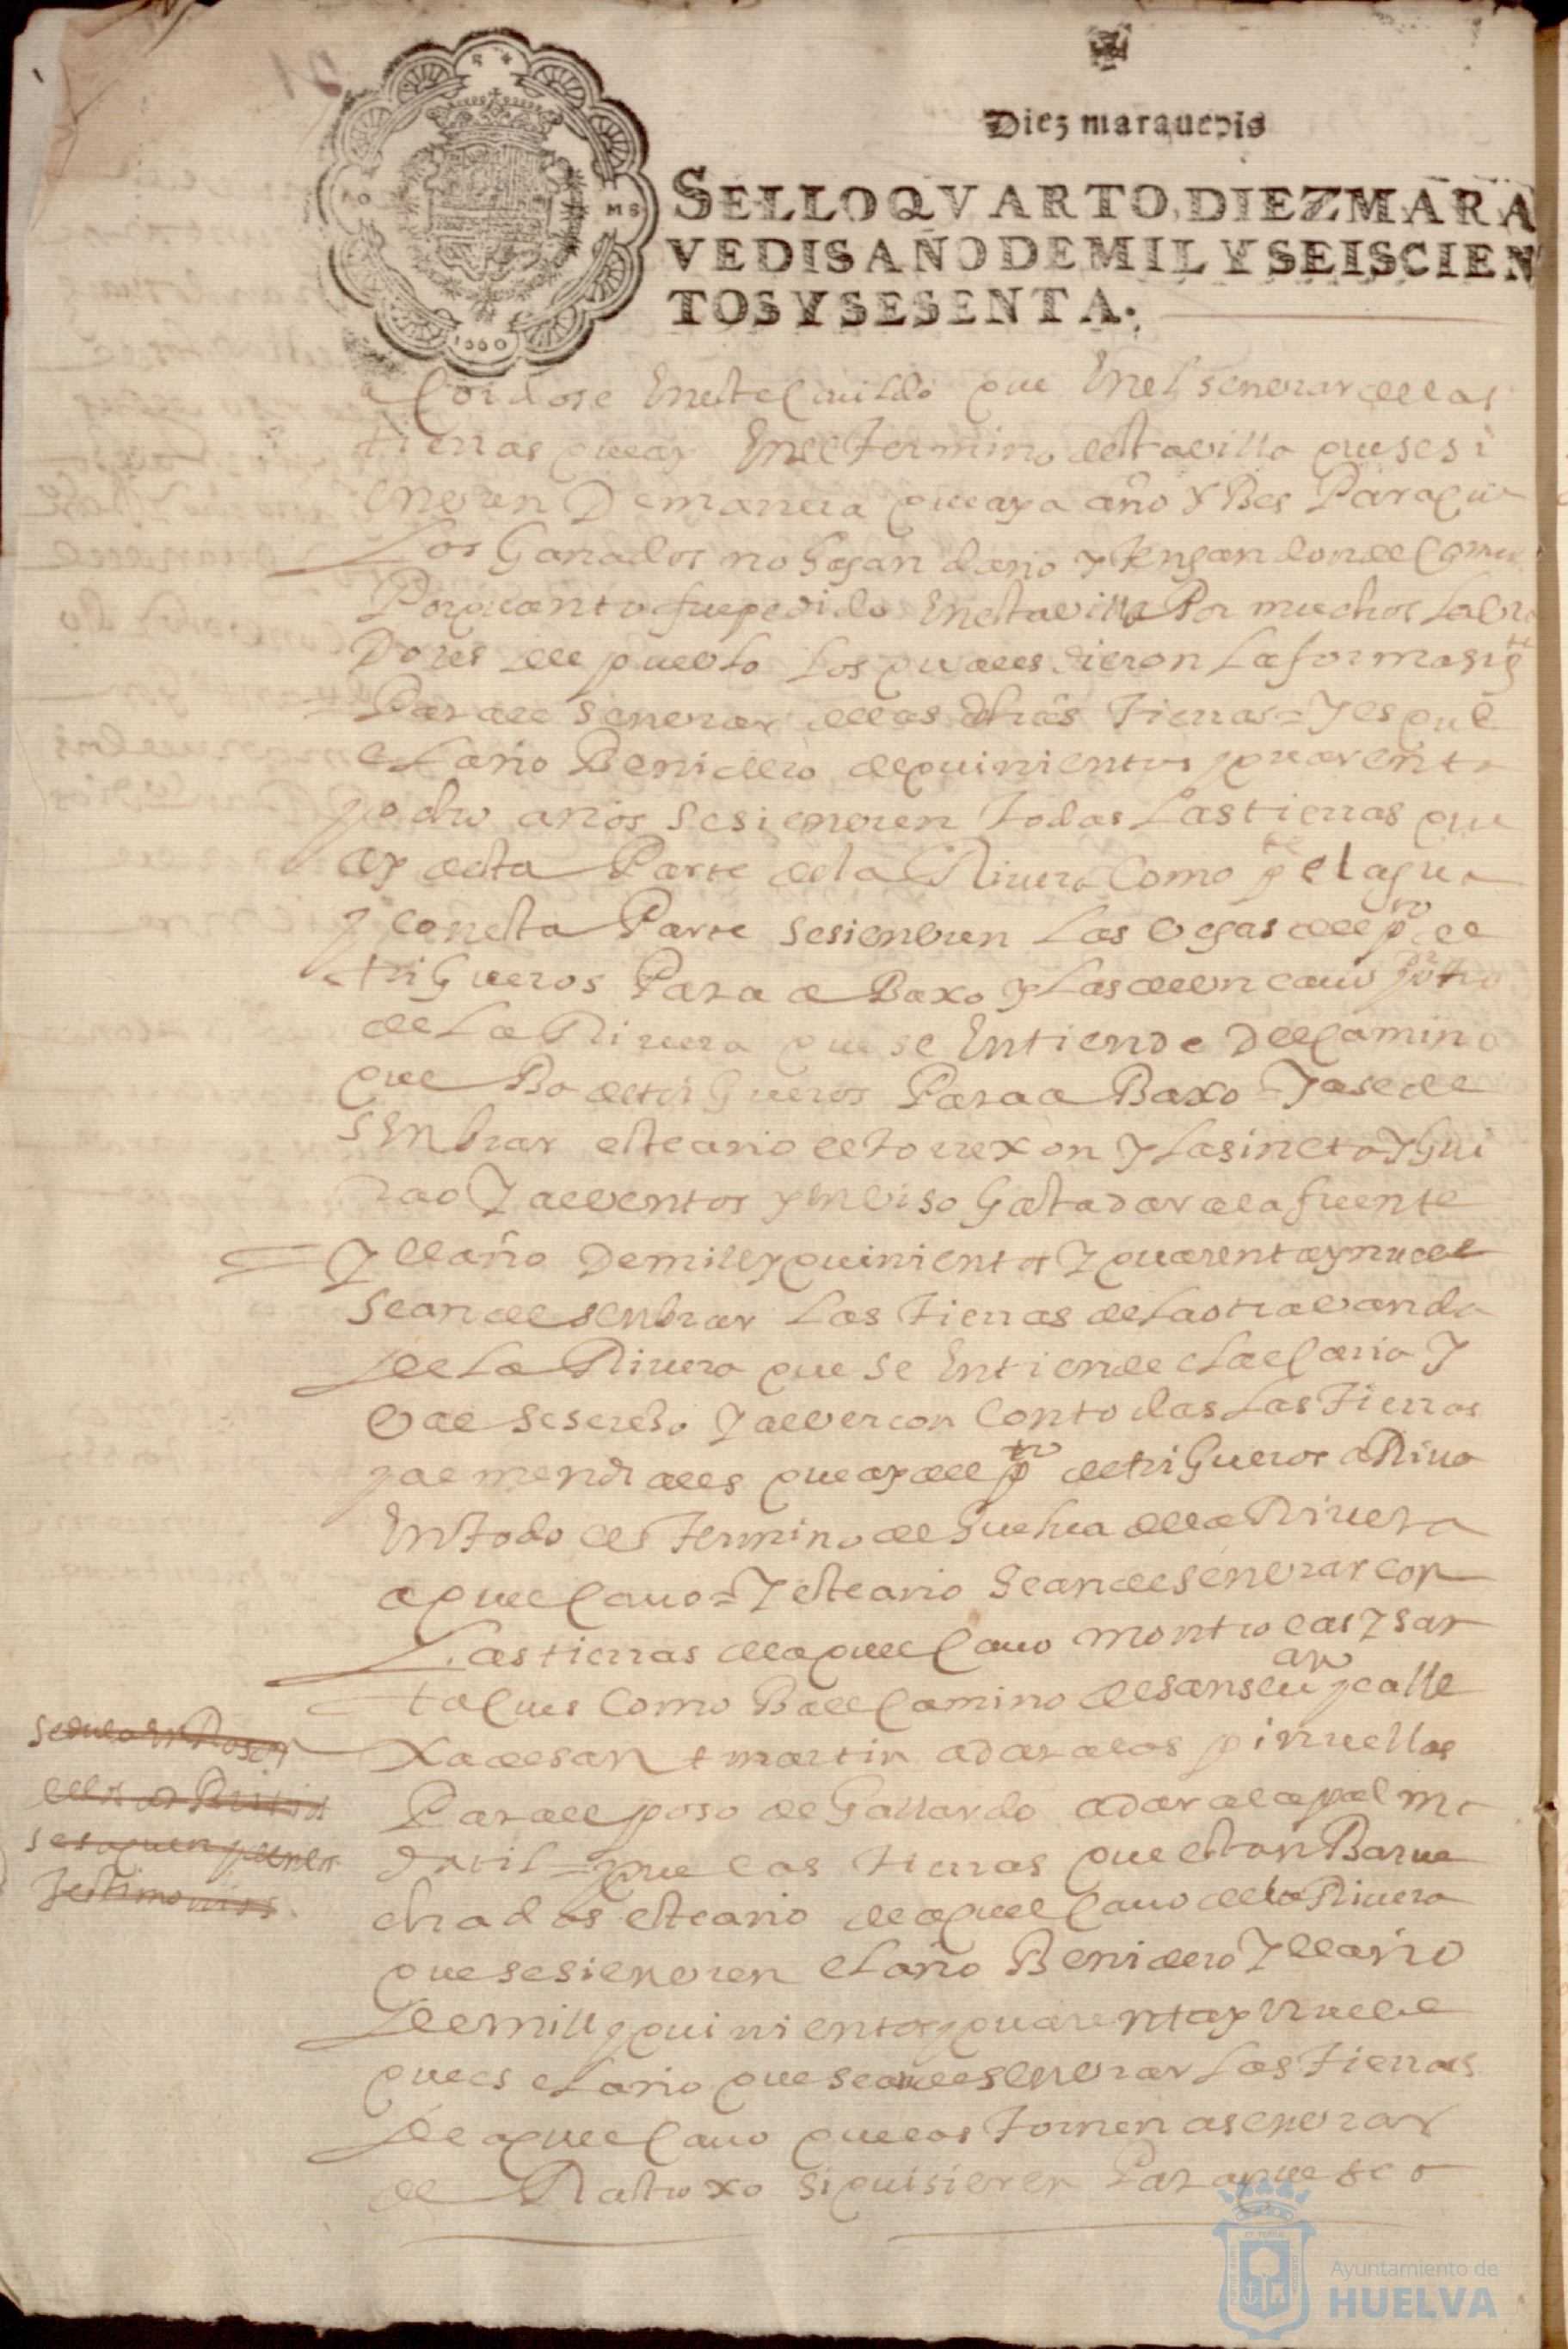 Diez maravedis
SELLO QVARTO, DIEZ MARA
VEDIS AÑO DE MIL Y SEISCIEN
TOS Y SESENTA.
1660
acordose en este cauildo que en el senbrar de las
tierras que ay en el termino desta villa que se si
enbren De manera que aya año y Bes Para que
Los Ganados no hagan daño y tengan donde comer
Por quanto fue pedido en esta villa Por muchos Labra
Dores del pueblo Los quales dieron La forma sigte
Para el senbrar de las dhas tierras = y es que
el año Benidero de quinientos y quarenta
y ocho años se sienbren todas Las tierras que
ay desta Parte de la Riuera como pte el agua
y con esta Parte se sienbren Las vegas del pto de
trigueros Para a Baxo y Las del un cauo y otro
de La Riuera que se Entiende Del camino
que Ba de trigueros Para a Baxo = y a se de
senbrar este año el torrexon y La sineta y
y alventos y hasta dar a la fuente
y el año De mill y quinientos y quarenta y nueve
se an de senbrar Las tierras de La otra vanda
de La Riuera que se Entiende
y con todas Las tierras
que ay del pto de trigueros a Riua
En todo el termino de huelua de la Riuera
a quel cauo = y este año se an de senbrar con
Las tierras de aquel cauo y
como Ba el camino de san y calle
xa de san martin a dar a los pinuellos
Para el poso de Gallardo a dar a la
que las tierras que estan Barue
chadas este año de aquel cauo de la Riuera
que se sienbren el año Benidero y el año
de mill y quinientos y quarenta y nueve
que es el año que se an de senbrar Las tierras
de aquel cauo que las tornen a senbrar
de Rastroxo si quisieren Para que se
Testimonios
Ayuntamiento de
HUELVA